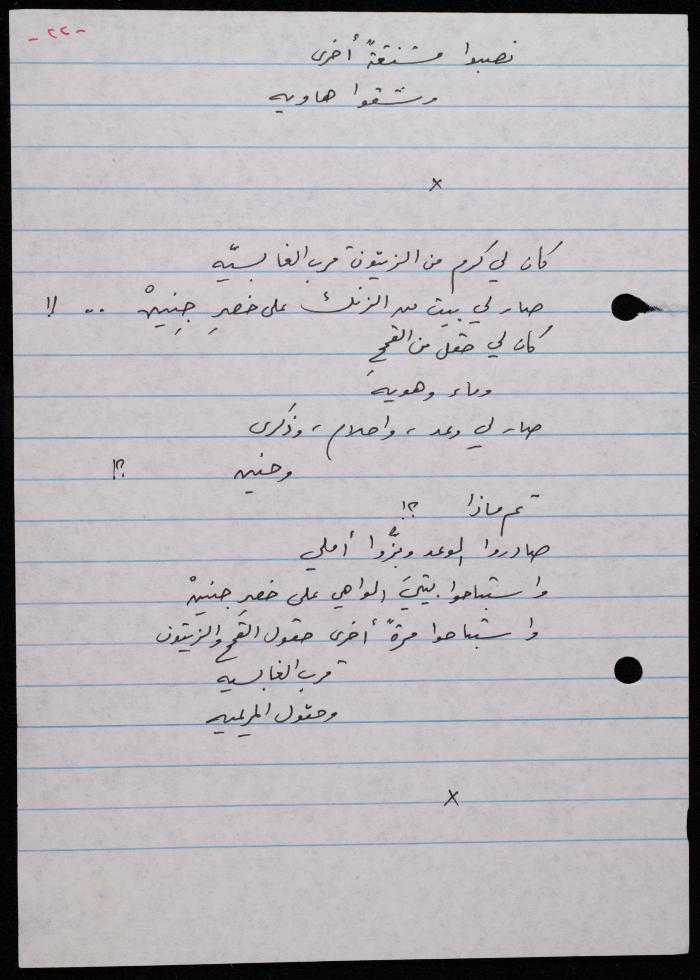 -٢٢-
نصبوا مشنقةً أخرى
وشقوا هاويه
×
كان لي كرم من الزيتون قرب الغابسيّه
صار لي بيت من الزنك على خصرِ جِنِينْ .. !!
كان لي حقل من القمحِ
وماء وهويه
صار لي وعد ، واحلام ، وذكرى
وحنين ؟!
ثم ماذا ؟!
صادروا الوعد وبزُّوا أملي
واستباحوا بيتيَ الواهي على خصرِ جنينْ
واستباحوا مرةً أخرى حقول القمح والزيتون
قرب الغابسيه
وحقول المريميه
×